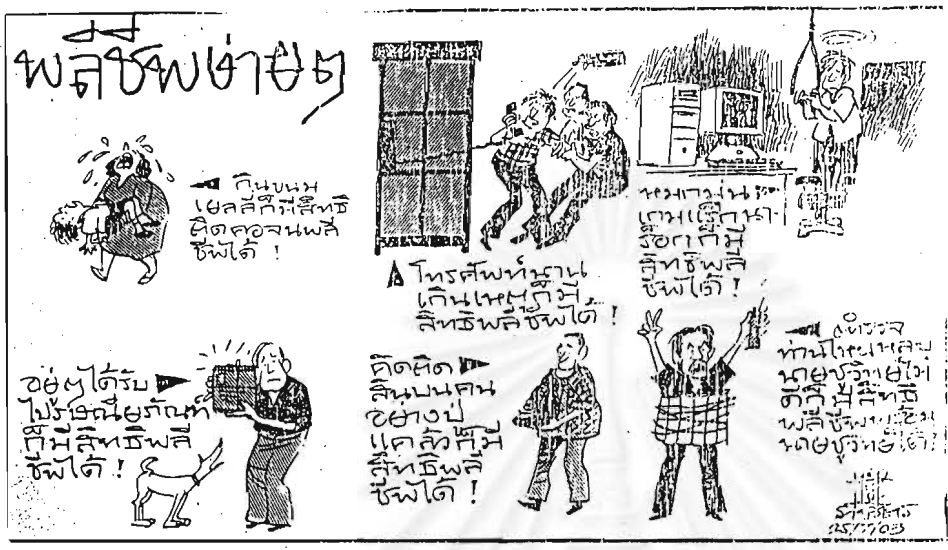 พลีชีพง่ายๆ
กินขนม
เยลลี่ก็มีสิทธิ
ติดคอจนพลี
ชีพได้ !
โทรศัพท์นาน
เกินเหตุก็มี
สิทธิพลีชีพได้ !
หมกมุ่น
เกมแร็กนา-
ร็อกก็มี
สิทธิพลี
ชีพได้ !
อยู่ๆได้รับ
ไปรษณียภัณฑ์
ก็มีสิทธิพลี
ชีพได้ !
คิดติด
สินบนคน
อย่างป๋
แคล้วก็มี
สิทธิพลี
ชีพได้ !
ตำรวจ
ท่านไหนหลบ
นายชูวิทย์ไม่
ดีก็มีสิทธิ
พลีชีพพร้อม
นายชูวิทย์ได้!